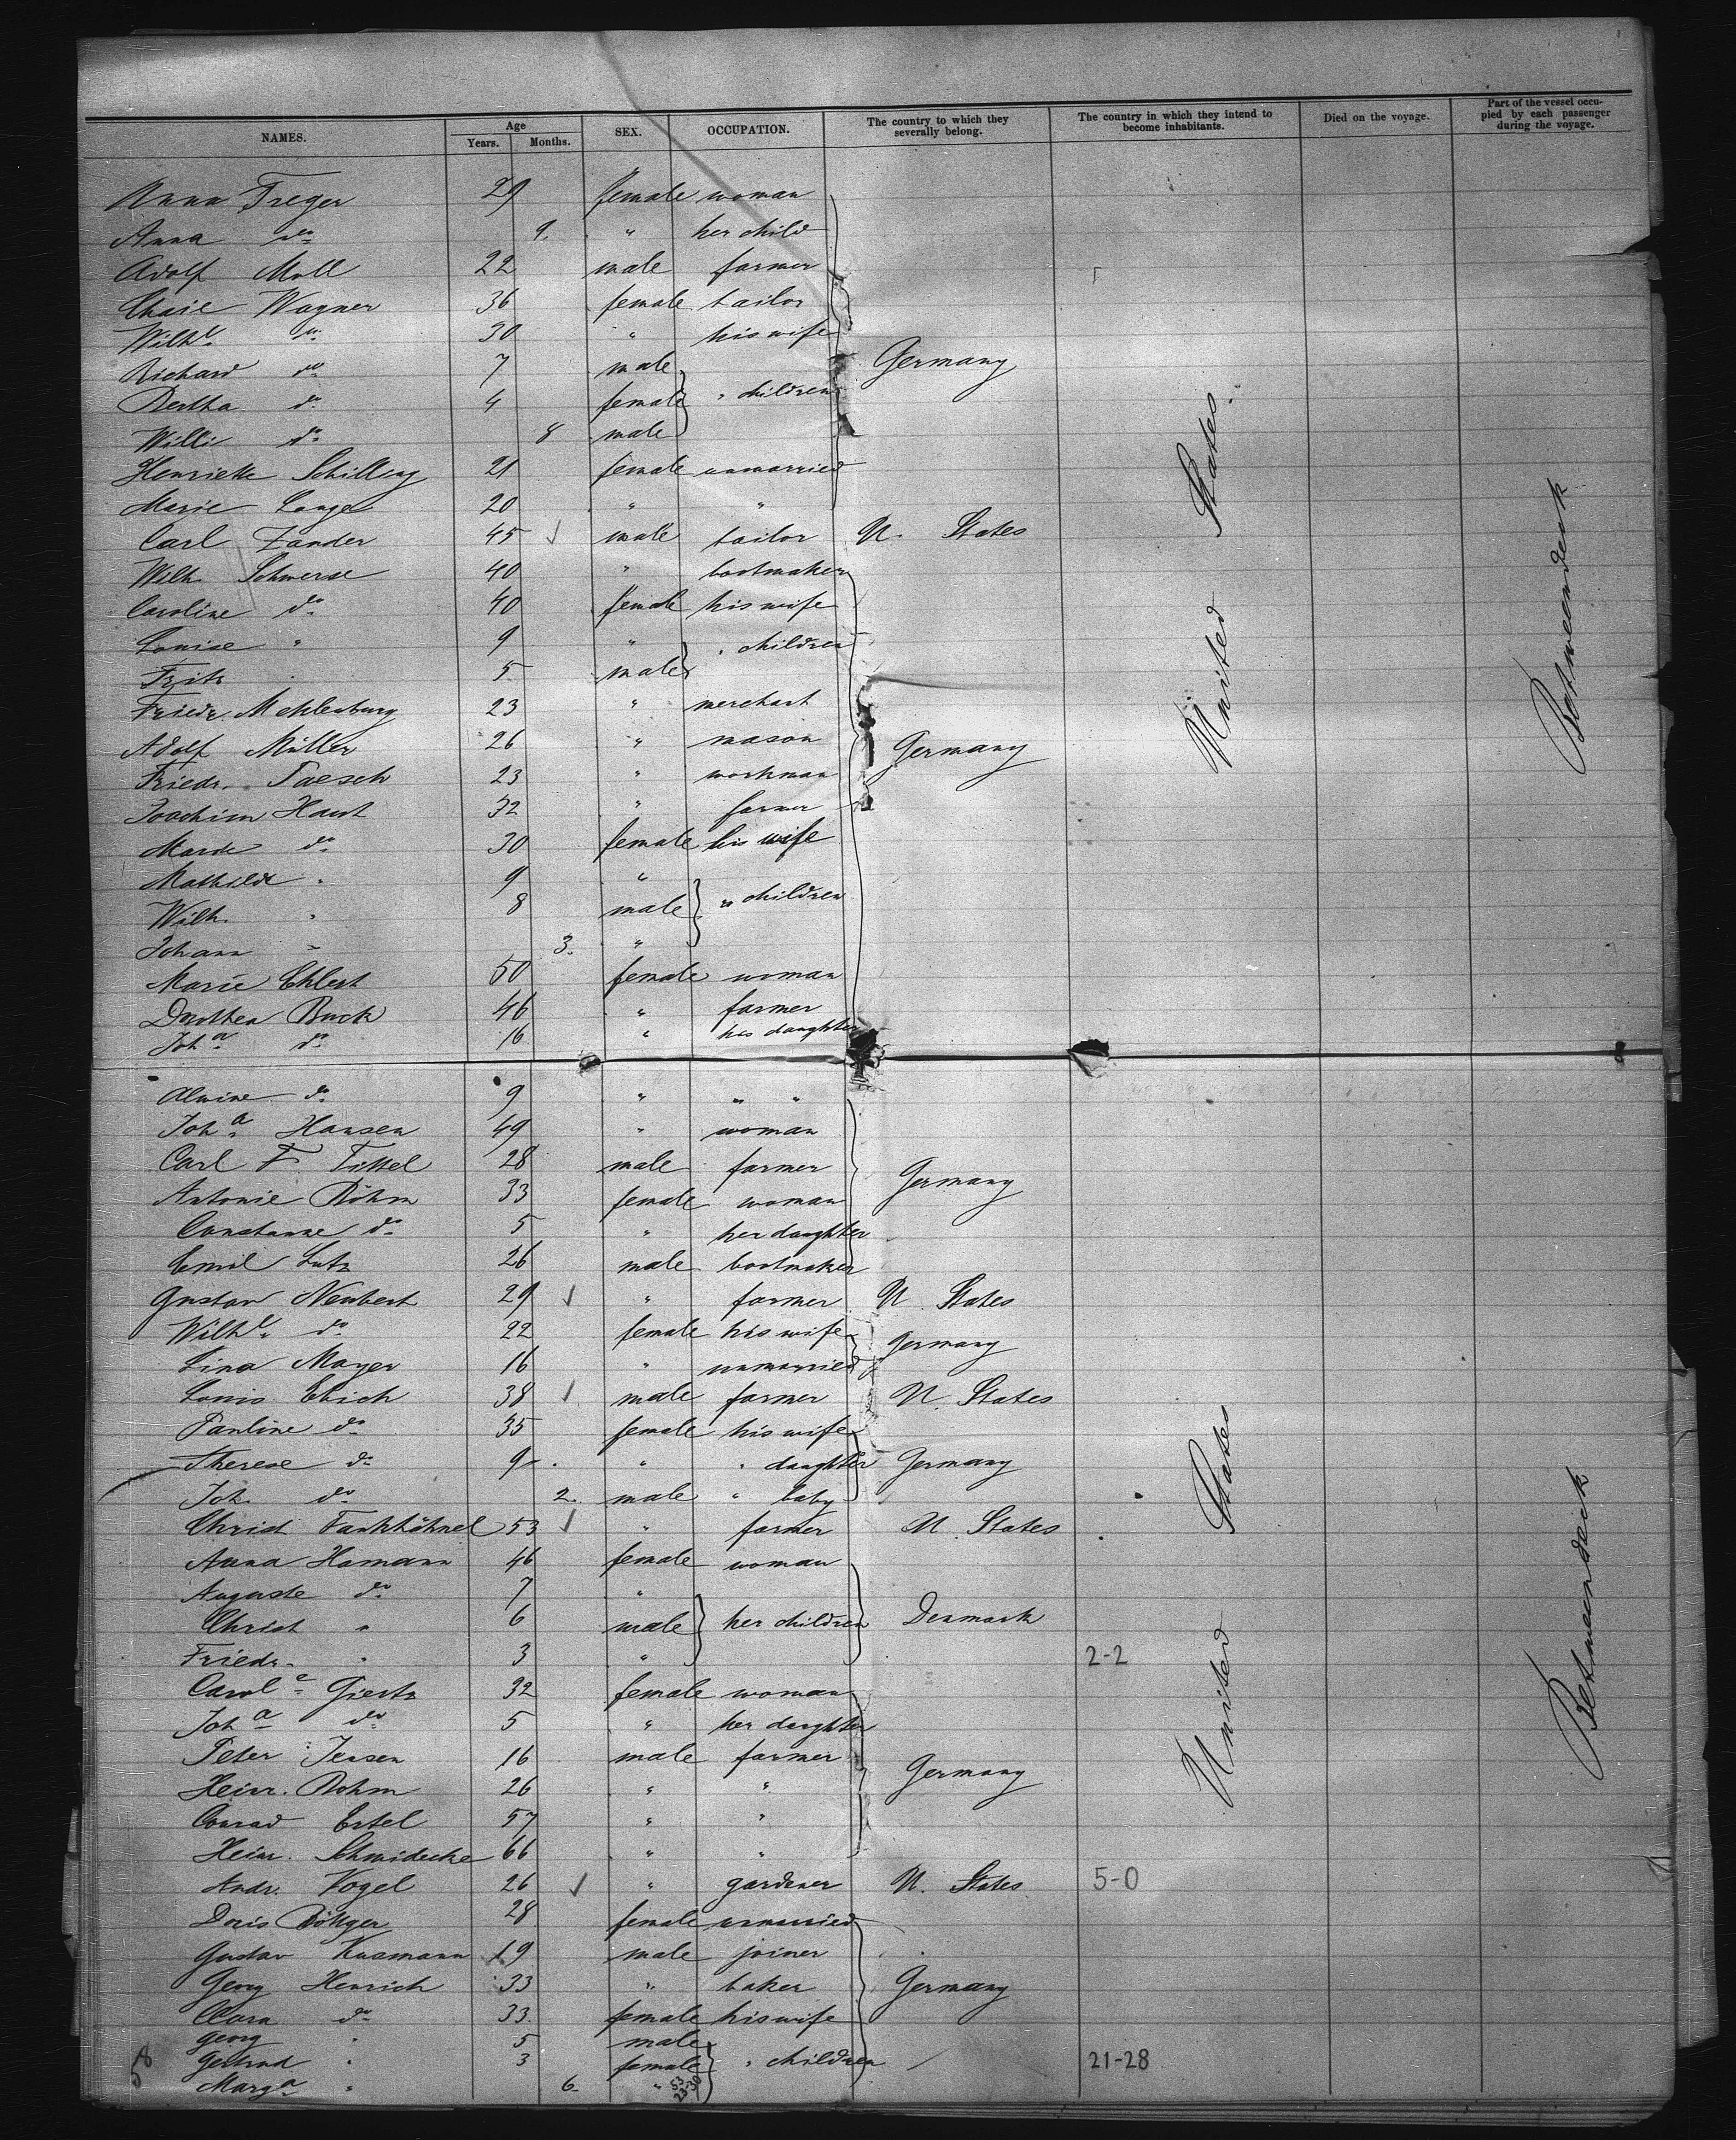 NAMES. Age Years. Months. SEX. OCCUPATION. The country to which they severally belong. The country in which they intend to become inhabitants. Died on the voyage. Part of the vessel occupied by each passenger during the voyage.
Anna Treger 29 female woman
Anna do 9. " her child
Adolf Moll 22 male farmer
Wagner 36 female tailor
Wilhe do 30 " his wife
Richard do 7 male
Bertha do 4 female " children Germany
Willi do 8 male
Henriette Schilling 21 female unmarried
Marie Lange 20 " "
Carl Zander 45 ✓ male tailor U. States
Wilh. Schwerse 40 " bootmaker
Caroline do 40 female his wife
Louise " 9 " " children
Fritz 5 male
Friedr. Mehlenburg 23 " merchant
Adolf Müller 26 " mason Germany
Friedr. Paesch 23 " workman
Joachim Haut 32 " farmer
Marie do 30 female his wife
Mathilde " 9 "
Wilh. " 8 male " children
Johann " 3. "
Marie Ehlert 50 female woman
Dorothea Buck 46 " farmer
Joha do 16 " his daughter
Alwine do 9 " " "
Joha Hansen 49 " woman
Carl F. Tittel 28 male farmer
Antonie Böhm 33 female woman Germany
Constanze do 5 " her daughter
Emil Lutz 26 male bootmaker
Gustav Neubert 29 ✓ " farmer U. States
Wilhe do 22 female his wife Germany
Lina Mayer 16 " unmarried
Louis Ebich 38 ✓ male farmer U. States
Pauline do 35 female his wife
Therese do 9 " " daughter Germany
Joh. do 2. male " baby
Christ Fankhähnel 53 ✓ " farmer U. States
Anna Hamann 46 female woman
Auguste do 7 "
Christ " 6 male her children Denmark
Friedr. " 3 " 2-2
Carole Giertz 32 female woman
Joha do 5 " her daughter
Peter Jensen 16 male farmer
Heinr. Bohm 26 " " Germany
Conrad Ertel 57 " "
Heinr. Schmidecke 66 " "
Andr. Vogel 26 ✓ " gardener U. States 5-0
Doris Böttger 28 female unmarried
Gustav Kusmann 19 male joiner
Georg Henrich 33 " baker Germany
Clara do 33 female his wife
Georg " 5 male
Gertrud " 3 female " children 21-28
Marga " 6. "
53
23-30
58
United States.
Betweendeck
United States
Betweendeck